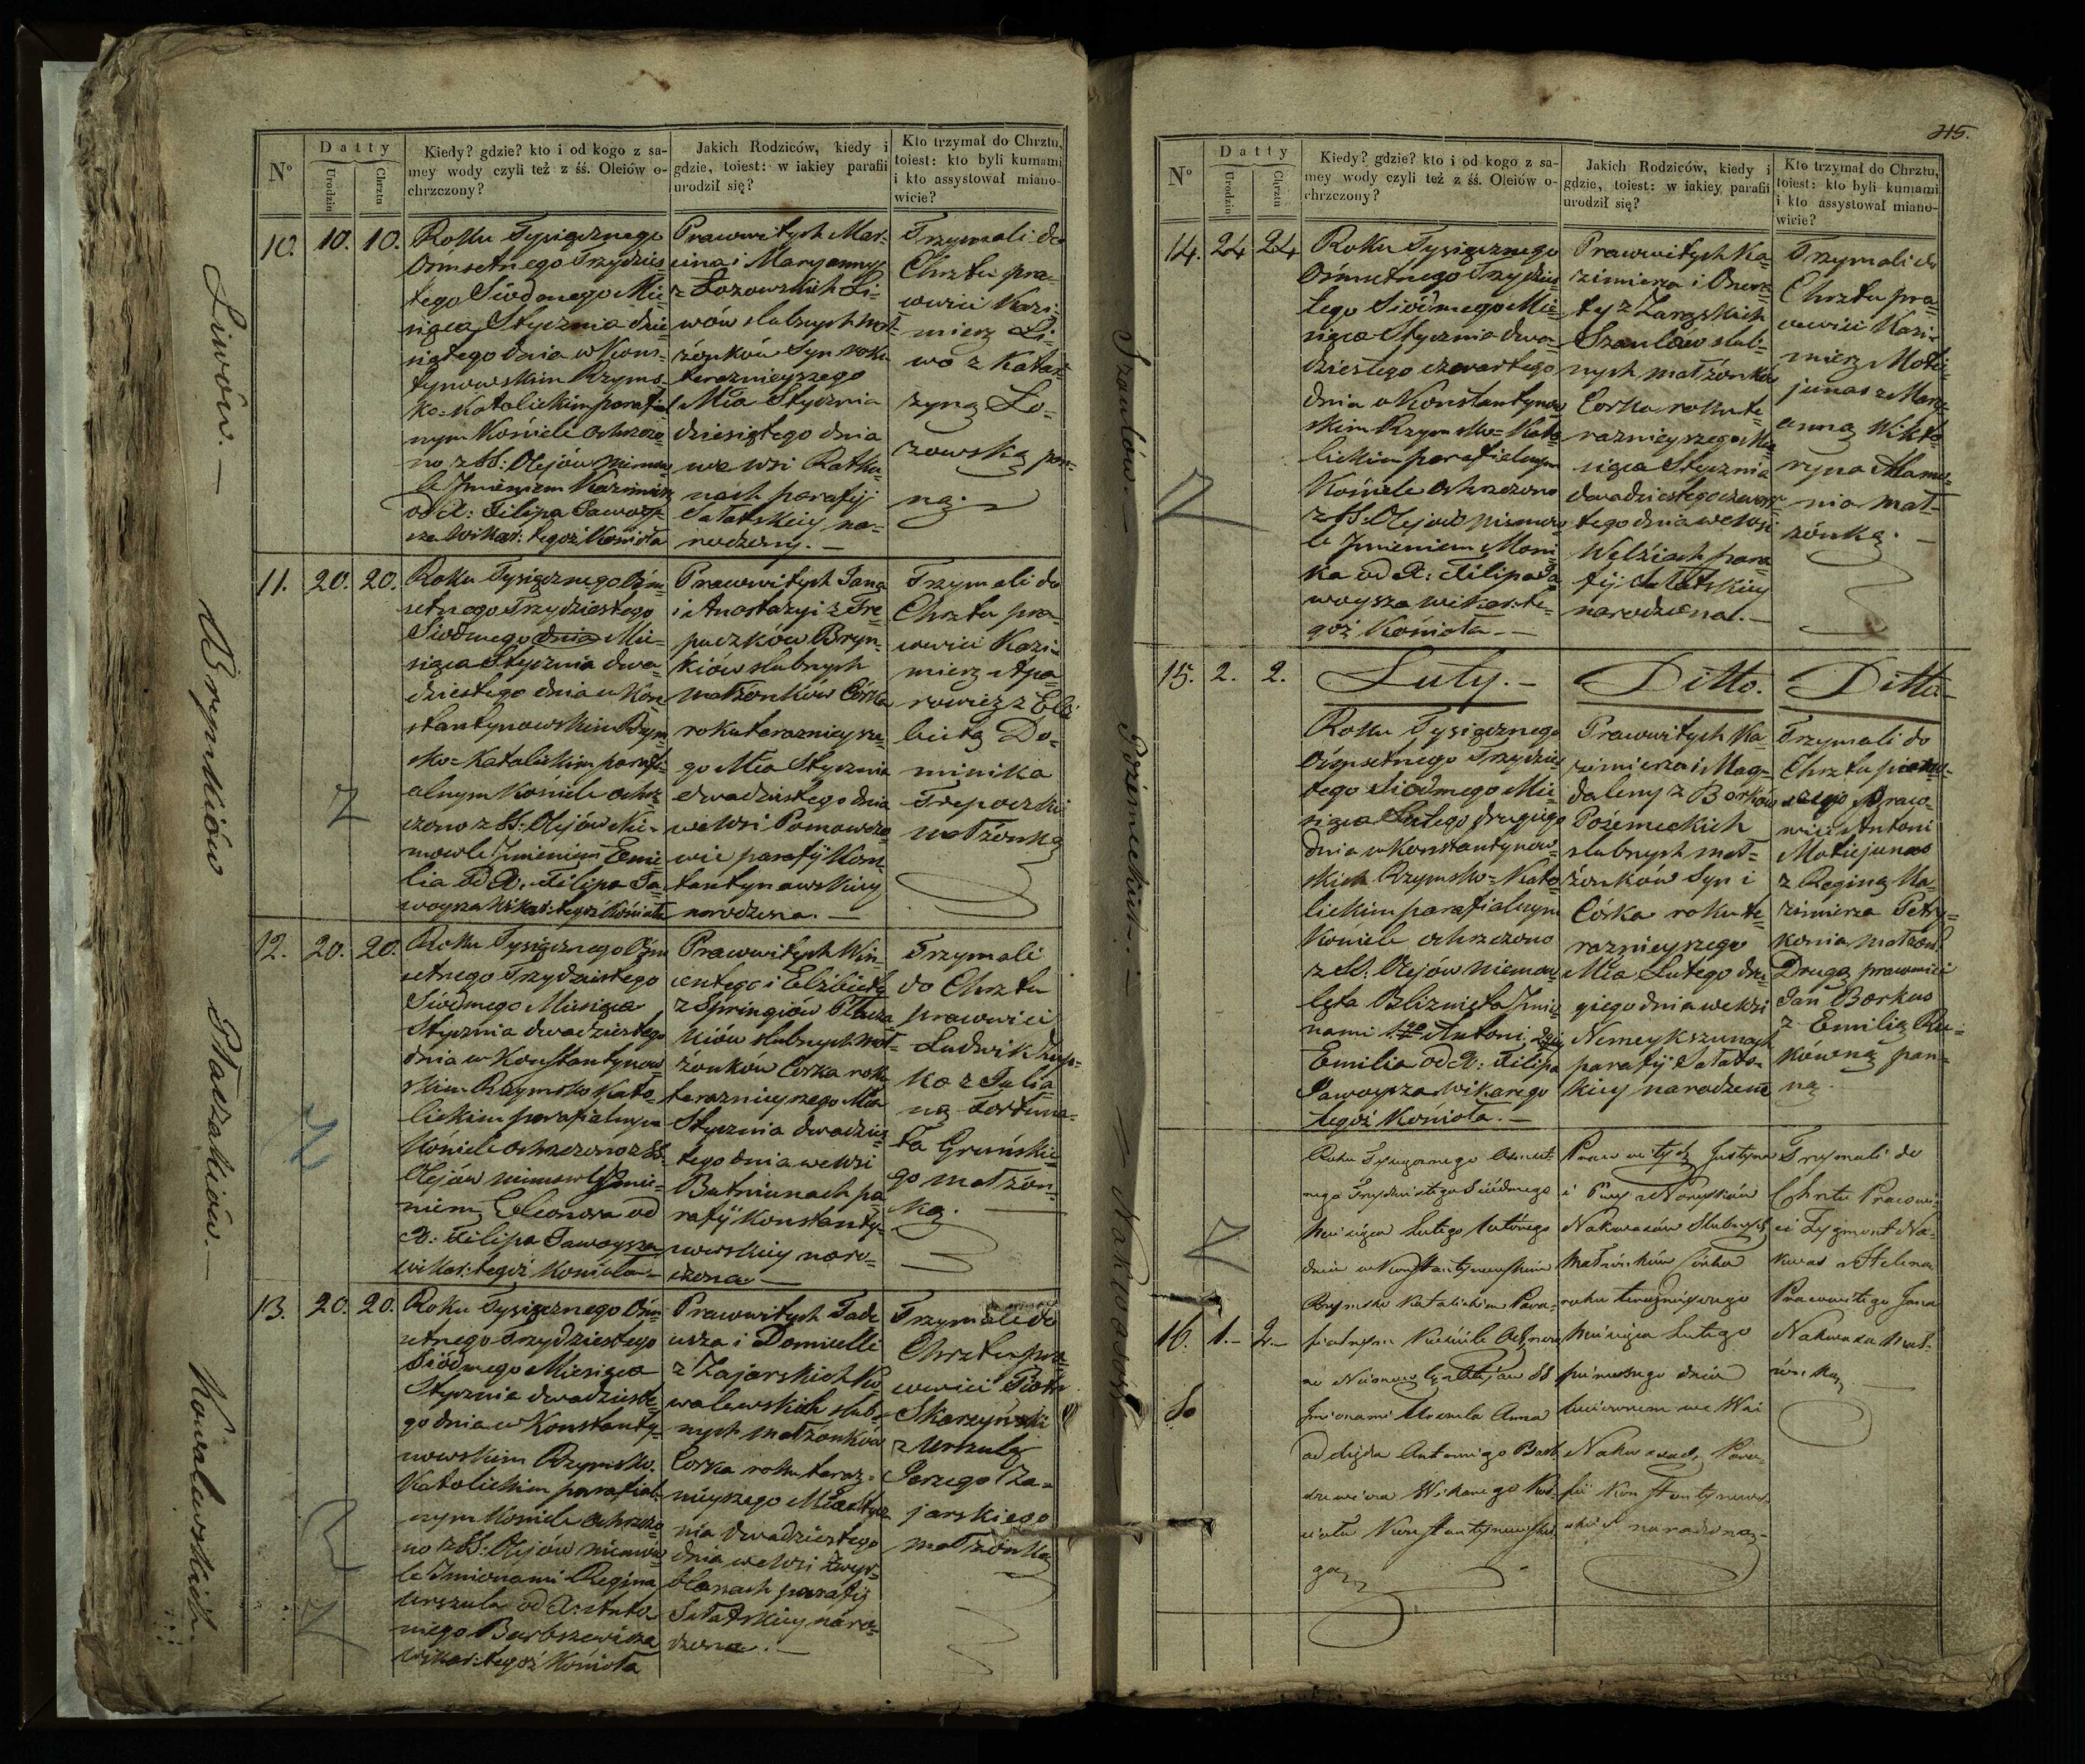 N°
Datty
Urodzin
Chrztu
Kiedy? gdzie? kto i od kogo z sa-
mey wody czyli też z śś. Oleiów o-
chrzczony?
Jakich Rodziców, kiedy i
gdzie, toiest: w iakiey parafii
urodził się?
Kto trzymał do Chrztu,
toiest: kto byli kumami
i kto assystował miano-
wicie?
Liwów. —
10. 10. 10.
Roku Tysiącznego
Ośmsetnego Trzydzies-
tego Siódmego Mie-
siąca Stycznia dzie-
siątego dnia w Kons-
tynowskim Rzyms-
ko-Katolickim parafial
nym Kościele Ochrzczo-
no z SS: Olejów niemow-
le Imieniem Kazimierz
od X: Filipa Jawoysz-
sza Wikar: tegoż Kościoła
Prawowitych Mar-
cina i Maryanny
z Łozowskich Li-
wów ślubnych Mał-
żonków Syn roku
teraznieyszego
Mca Stycznia
dziesiątego dnia
we wsi Ratku-
nach parafij
Sałatskiey na-
rodzony. —
Trzymali do
Chrztu pra-
wowici Kazi-
mierz Li-
wo z Katar-
zyną Ło-
zowską pan-
ną.
Brynkiów
11. 20. 20.
Roku Tysiącznego Ośm-
setnego Trzydziestego
Siódmego dnia Mie-
siąca Stycznia dwu-
dziestego dnia w Kon-
stantynowskim Rzym-
sko-Katolickim parafi-
alnym Kościele ochrz-
czono z SS: Olejów Nie-
mowle Imieniem Emi-
lia od X: Filipa Ja-
woysza Wikar: tegoż Kościoła
Prawowitych Jana
i Anastazyi z Tre-
paczków Bryn-
kiów ślubnych
małżonków Córka
roku teraznieysze-
go Mca Stycznia
dwudziestego dnia
we Wsi Pomowszo-
wie parafij Kons-
tantynowskiey
narodzona. —
Trzymali do
Chrztu pra-
wowici Kazi-
mierz Apa-
rowicz z Elż-
bietą Do-
minika
Trepaczki
małżonką
Płaczaków. —
12. 20. 20.
Roku Tysiącznego Ośm-
setnego Trzydziestego
Siódmego Miesiąca
Stycznia dwudziestego
dnia w Konstantynow-
skim Rzymsko Kato-
lickim parafialnym
Kościele ochrzczono z SS.
Olejów niemowle Imie-
niem Eleonora od
X: Filipa Jawoysza
wikar: tegoż Kościoła —
Prawowitych Win-
centego i Elżbiety
z Springiów Płacza-
kiów ślubnych Mał-
żonków Córka roku
teraznieyszego Mca
Stycznia dwudzies-
tego dnia we Wsi
Butniunach pa-
rafij Konstanty-
nowskiey naro-
dzona —
Trzymali
do Chrztu
prawowici
Ludwik
ko z Julia-
ną Fortuna-
ta Gruńskie-
go małżon-
ką. —
Kowalewskich.
13. 20. 20.
Roku Tysiącznego Ośm-
setnego Trzydziestego
Siódmego Miesiąca
Stycznia dwudzieste-
go dnia w Konstanty-
nowskim Rzymsko-
Katolickim parafial-
nym Kościele ochrzczo-
no z SS: Olejów niemow-
le Imionami Regina
Urszula od X: Anto-
niego Burbszewicza
Wikar: tegoż Kościoła
Prawowitych Tade-
usza i Domicelli
z Zajarskich Ko-
walewskich ślub-
nych małżonków
Córka roku teraz-
nieyszego Mca Stycz-
nia dwudziestego
dnia we Wsi
parafij
Sałatskiey naro-
dzona. —
Trzymali do
Chrztu pra-
wowici Piotr
Skarzyński
z Urszulą
Jerzego Za-
jarskiego
małżonką
315.
N°
Datty
Urodzin
Chrztu
Kiedy? gdzie? kto i od kogo z sa-
mey wody czyli też z śś. Oleiów o-
chrzczony?
Jakich Rodziców, kiedy i
gdzie, toiest: w iakiey parafii
urodził się?
Kto trzymał do Chrztu,
toiest: kto byli kumami
i kto assystował miano-
wicie?
Szaulów. —
14. 24 24
Roku Tysiącznego
Ośmsetnego Trzydzies-
tego Siódmego Mie-
siąca Stycznia dwu-
dziestego czwartego
dnia w Konstantynow-
skim Rzymsko-Kato-
lickim parafialnym
Kościele Ochrzczono
z SS: Olejów niemow-
le Imieniem Moni-
ka od X: Filipa Ja-
woysza wikar: te-
goż Kościoła —
Prawowitych Ka-
zimierza i
ty z Zarąskich
Szaulów ślub-
nych małżonków
Corka roku te-
raznieyszego Mie-
siąca Stycznia
dwudziestego czwar-
tego dnia we Wsi
Welżiach para-
fij Sałatskiey
narodzona. —
Trzymali do
Chrztu pra-
wowici Kazi-
mierz Mate-
junas z Mary-
anną Wikto-
ryna
nia mał-
żonką. —
Pożemeckich. —
15. 2. 2.
Luty. —
Ditto.
Ditto
Roku Tysiącznego
Ośmsetnego Trzydzies-
tego Siódmego Mie-
siąca Lutego drugiego
dnia w Konstantynow-
skim Rzymsko-Kato-
lickim parafialnym
Kościele ochrzczono
z SS: Olejów niemow-
lęta Bliznięta Imio-
nami 1sze Antoni, 2gie
Emilia od X: Filipa
Jawoysza Wikarego
tegoż Kościoła. —
Prawowitych Ka-
zimierza i Mag-
daleny z Borków
Pożemeckich
ślubnych mał-
żonków Syn i
Córka roku te-
raznieyszego
Mca Lutego dru-
giego dnia we Wsi
Nemeykszunach
parafij Sałats-
kiey narodzeni
Trzymali do
Chrztu pierw-
szego Praw-
wici Antoni
Matiejunas
z Reginą Ka-
zimierza Petry-
konia małżon:
Drugą prawowici
Jan Borkus
z Emilią
kówną pan-
ną.
Nakwasów
16. 1. — 2. —
Roku Tysiącznego Ośmset-
nego Trzydziestego Siódmego
Miesiąca Lutego wtórego
dnia w Konstantynowskim
Rzymsko Katolickim Para-
fialnym Kościele Ochrzczo-
no Niemowle z Olejów SS
Imionami Urszula Anna
od Xiędza Antoniego Burb-
szewicza Wikarego Koś-
cioła Konstantynowskie-
go
Prawowitych Justyna
i z Norejków
Nakwasów Ślubnych
Małżonków Córka
roku teraznieyszego
Miesiąca Lutego
pierwszego dnia
we Wsi
Nakwasach Para-
fii Konstantynow-
skiej narodzona —
Trzymali do
Chrztu Prawowi-
ci Zygmunt Na-
kwas z Heleną
Prawowitego Jana
Nakwasa Mał-
żonką